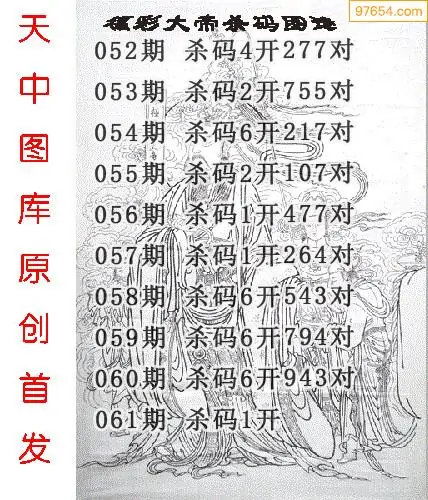 97654.com
福彩大帝杀码图谜
052期 杀码4开277对
053期 杀码2开755对
054期 杀码6开217对
055期 杀码2开107对
056期 杀码1开477对
057期 杀码1开264对
058期 杀码6开543对
059期 杀码6开794对
060期 杀码6开943对
061期 杀码1开
天中图库原创首发